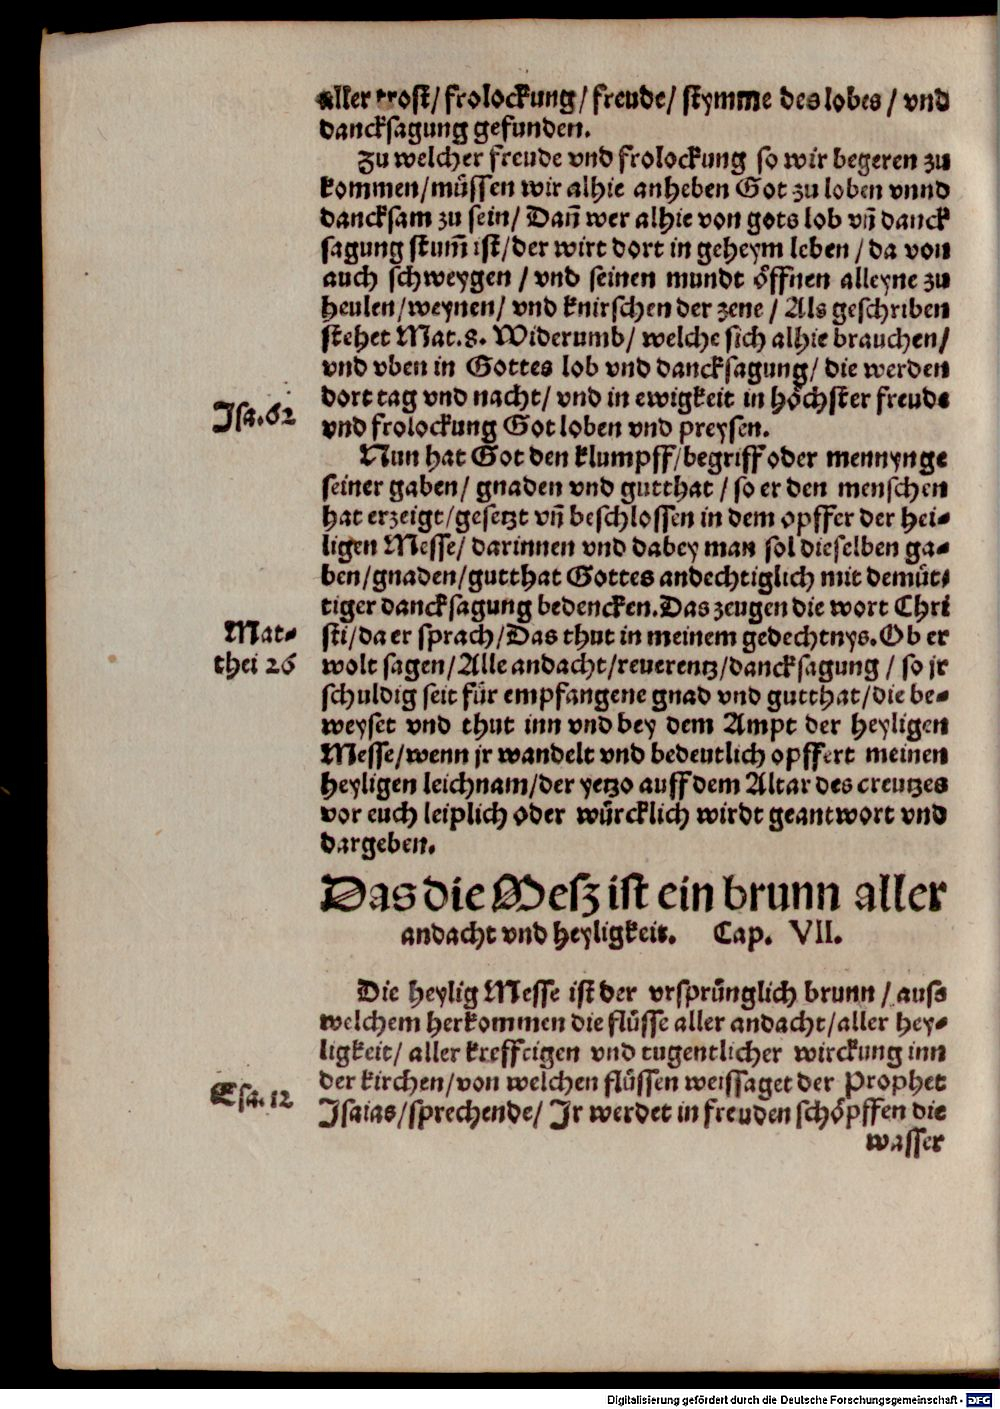 aller trost/ frolockung/ freude/ stymme des lobes / vnd
dancksagung gefunden.
Zu welcher freude vnd frolockung so wir begeren zu
kommen/müssen wir alhie anheben Got zu loben vnnd
dancksam zu sein/ Dañ wer alhie von gots lob vñ danck
sagung stum̃ ist/der wirt dort in geheym leben / da von
auch schweygen / vnd seinen mundt öffnen alleyne zu
heulen/weynen/ vnd knirschen der zene / Als geschriben
stehet Mat.8. Widerumb/ welche sich alhie brauchen/
vnd vben in Gottes lob vnd dancksagung/ die werden
dort tag vnd nacht/ vnd in ewigkeit in höchster freude
Jsa.62
vnd frolockung Got loben vnd preysen.
Nun hat Got den klumpff/begriff oder mennynge
seiner gaben/ gnaden vnd gutthat / so er den menschen
hat erzeigt/gesetzt vñ beschlossen in dem opffer der hei-
ligen Messe/ darinnen vnd dabey man sol dieselben ga-
ben/gnaden/gutthat Gottes andechtiglich mit demüt-
tiger dancksagung bedencken.Das zeugen die wort Chri
Mat-
thei 26
sti/da er sprach/Das thut in meinem gedechtnys.Ob er
wolt sagen/Alle andacht/reuerentz/dancksagung / so jr
schuldig seit für empfangene gnad vnd gutthat/die be-
weyset vnd thut inn vnd bey dem Ampt der heyligen
Messe/wenn jr wandelt vnd bedeutlich opffert meinen
heyligen leichnam/der yetzo auff dem Altar des creutzes
vor euch leiplich oder würcklich wirdt geantwort vnd
dargeben.
Das die Mesz ist ein brunn aller
andacht vnd heyligkeit. Cap. VII.
Die heylig Messe ist der vrsprünglich brunn / auss
welchem herkommen die flüsse aller andacht/aller hey-
ligkeit/ aller kreffeigen vnd tugentlicher wirckung inn
der kirchen/von welchen flüssen weissaget der Prophet
Esa.12
Jsaias/sprechende/ Jr werdet in freuden schöpffen die
wasser
Digitalisierung gefördert durch die Deutsche Forschungsgemeinschaft - DFG